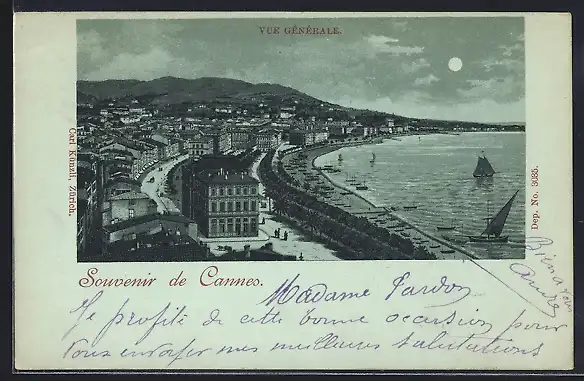 VUE GÉNÉRALE.
Carl Künzli, Zürich.
Dep. No. 3085.
Souvenir de Cannes.
Madame Pardon
Je profite de cette bonne occasion pour
Vous envoyer mes meilleures salutations
Bien à vous
André